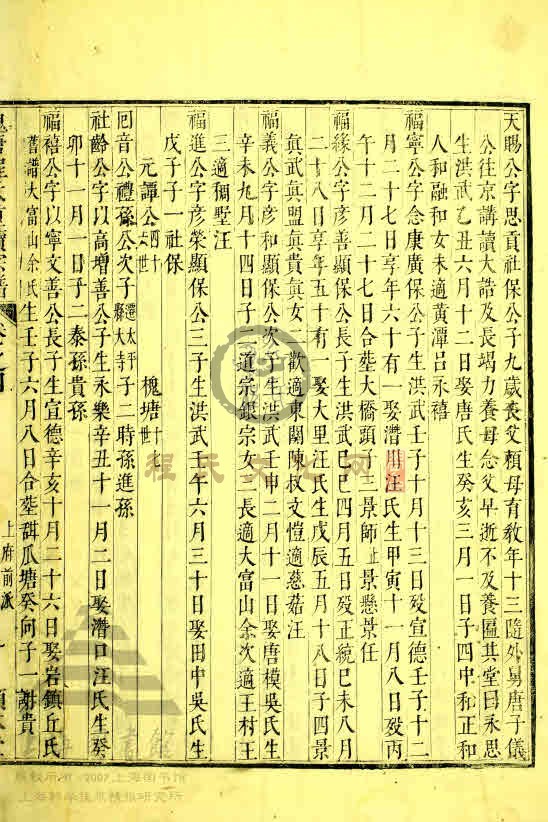 天賜公字思貢社保公子九歲喪父賴母育敎年十三隨外舅唐子儀
公往京講讀大誥及長竭力養母念父早逝不及養匾其堂曰永思
生洪武乙丑六月十二日娶唐氏生癸亥三月一日子四中和正和
人和融和女未適黃潭呂永禧
福寧公字念康廣保公子生洪武壬子十月十三日歿宣德壬子十二
月二十七日享年六十有一娶潛川汪氏生甲寅十一月八日歿丙
午十二月二十七日合塟大橋頭子三景師景懸景任
福緣公字彦善顯保公長子生洪武己巳四月五日歿正統己未八月
二十八日享年五十有一娶大里汪氏生戊辰五月十八日子四景
眞武眞盟眞貴眞女二歡適東關陳叔文愷適慈菇汪
福義公字彦和顯保公次子生洪武壬申二月十一日娶唐模吳氏生
辛未九月十四日子二道宗銀宗女三長適大富山余次適王村王
三適稠墅汪
福進公字彦榮顯保公三子生洪武壬午六月三十日娶田中吳氏生
戊子子一社保
元譚公四十六世 槐塘十七世
囘音公禮孫公次子遷太平縣大寺子二時孫進孫
社齡公字以高增善公子生永樂辛丑十一月二日娶潛口汪氏生癸
卯十一月一日子二泰孫貴孫
福禧公字以寧文善公長子生宣德辛亥十月二十六日娶岩鎮丘氏
舊譜大富山余氏生壬子六月八日合塟甜瓜塘癸向子一謝貴
上府前派
程氏文化网
版權所有 2007上海圖書館